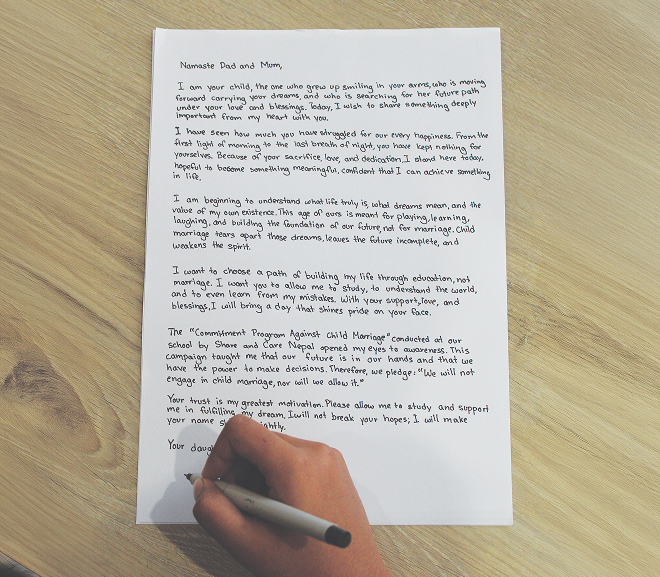 Namaste Dad and Mum,
I am your child, the one who grew up smiling in your arms, who is moving
forward carrying your dreams, and who is searching for her future path
under your love and blessings. Today, I wish to share something deeply
important from my heart with you.
I have seen how much you have struggled for our every happiness. From the
first light of morning to the last breath of night, you have kept nothing for
yourselves. Because of your sacrifice, love, and dedication, I stand here today,
hopeful to become something meaningful, confident that I can achieve something
in life.
I am beginning to understand what life truly is, what dreams mean, and the
value of my own existence. This age of ours is meant for playing, learning,
laughing, and building the foundation of our future, not for marriage. Child
marriage tears apart those dreams, leaves the future incomplete, and
weakens the spirit.
I want to choose a path of building my life through education, not
marriage. I want you to allow me to study, to understand the world,
and to even learn from my mistakes. With your support, love, and
blessings, I will bring a day that shines pride on your face.
The "Commitment Program Against Child Marriage" conducted at our
school by Share and Care Nepal opened my eyes to awareness. This
campaign taught me that our future is in our hands and that we
have the power to make decisions. Therefore, we pledge: "We will not
engage in child marriage, nor will we allow it."
Your trust is my greatest motivation. Please allow me to study and support
me in fulfilling my dream. I will not break your hopes; I will make
your name
Your